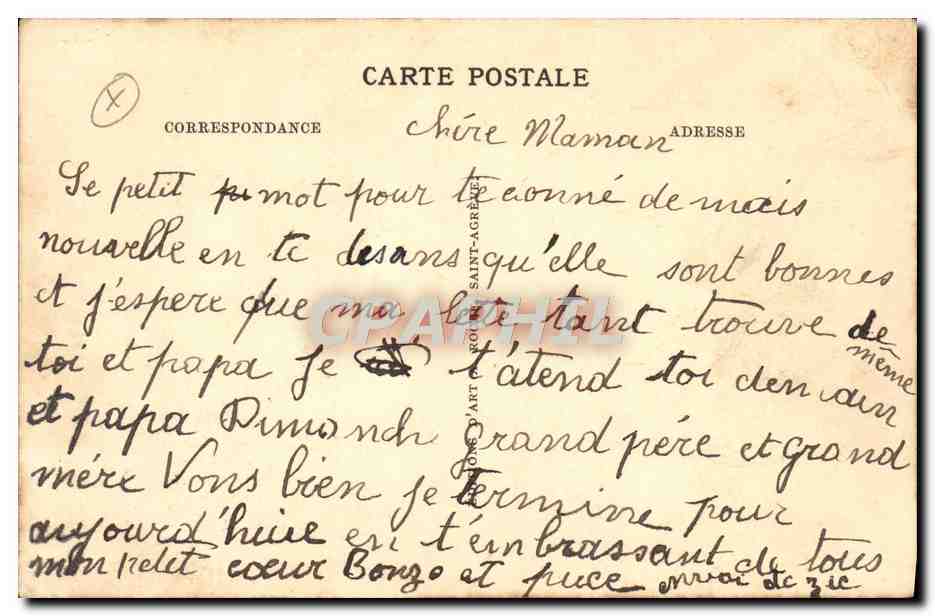 CARTE POSTALE
CORRESPONDANCE
ADRESSE
chére Maman
Se petit mot pour te donné de mais
nouvelle en te desans qu'elle sont bonnes
et j'espere que ma lette tant trouve de
même
toi et papa je t'atend toi demain
et papa Dimanch Grand pére et Grand
mére Vons bien je termine pour
aujourd'huie en t'embrassant de tous
mon petit coeur Bonzo et puce
D'ART ROCHE SAINT-AGRÈVE
CPAPHIL